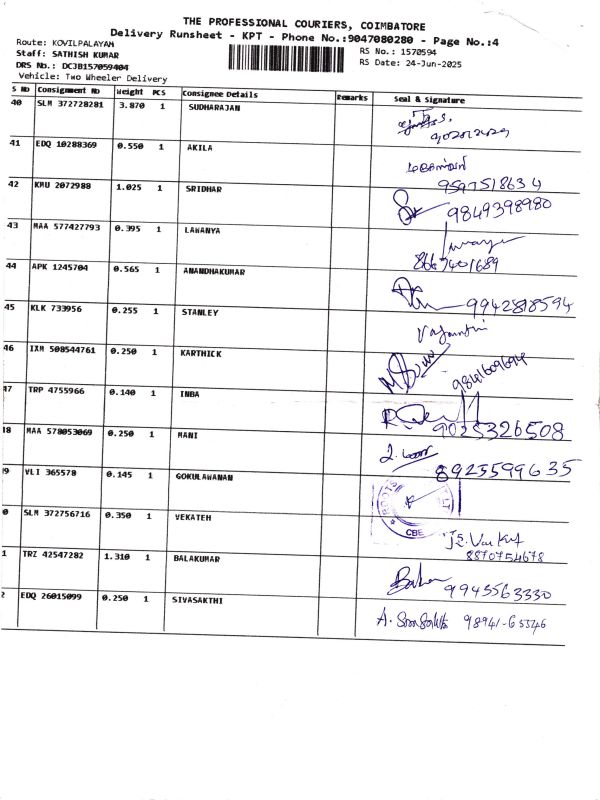 THE PROFESSIONAL COURIERS, COIMBATORE
Delivery Runsheet - KPT - Phone No.:9047080280 - Page No.:4
Route: KOVILPALAYAM
Staff: SATHISH KUMAR
DRS No.: DCJB157059404
Vehicle: Two Wheeler Delivery
RS No.: 1570594
RS Date: 24-Jun-2025
S No Consignment No Weight PCS Consignee Details Remarks Seal & Signature
40 SLM 372728281 3.870 1 SUDHARAJAN
41 EDQ 10288369 0.550 1 AKILA
9597518634
42 KMU 2072988 1.025 1 SRIDHAR
9849398980
43 MAA 577427793 0.395 1 LAWANYA
8667401689
44 APK 1245704 0.565 1 ANANDHAKUMAR
9942818594
45 KLK 733956 0.255 1 STANLEY
46 IXM 508544761 0.250 1 KARTHICK
9841609694
47 TRP 4755966 0.140 1 INBA
9025326508
48 MAA 578053069 0.250 1 MANI
8925599635
9 VLI 365578 0.145 1 GOKULAWANAN
CBE
0 SLM 372756716 0.350 1 VEKATEH
8870754678
1 TRZ 42547282 1.310 1 BALAKUMAR
9945563330
2 EDQ 26015099 0.250 1 SIVASAKTHI
98941-65546